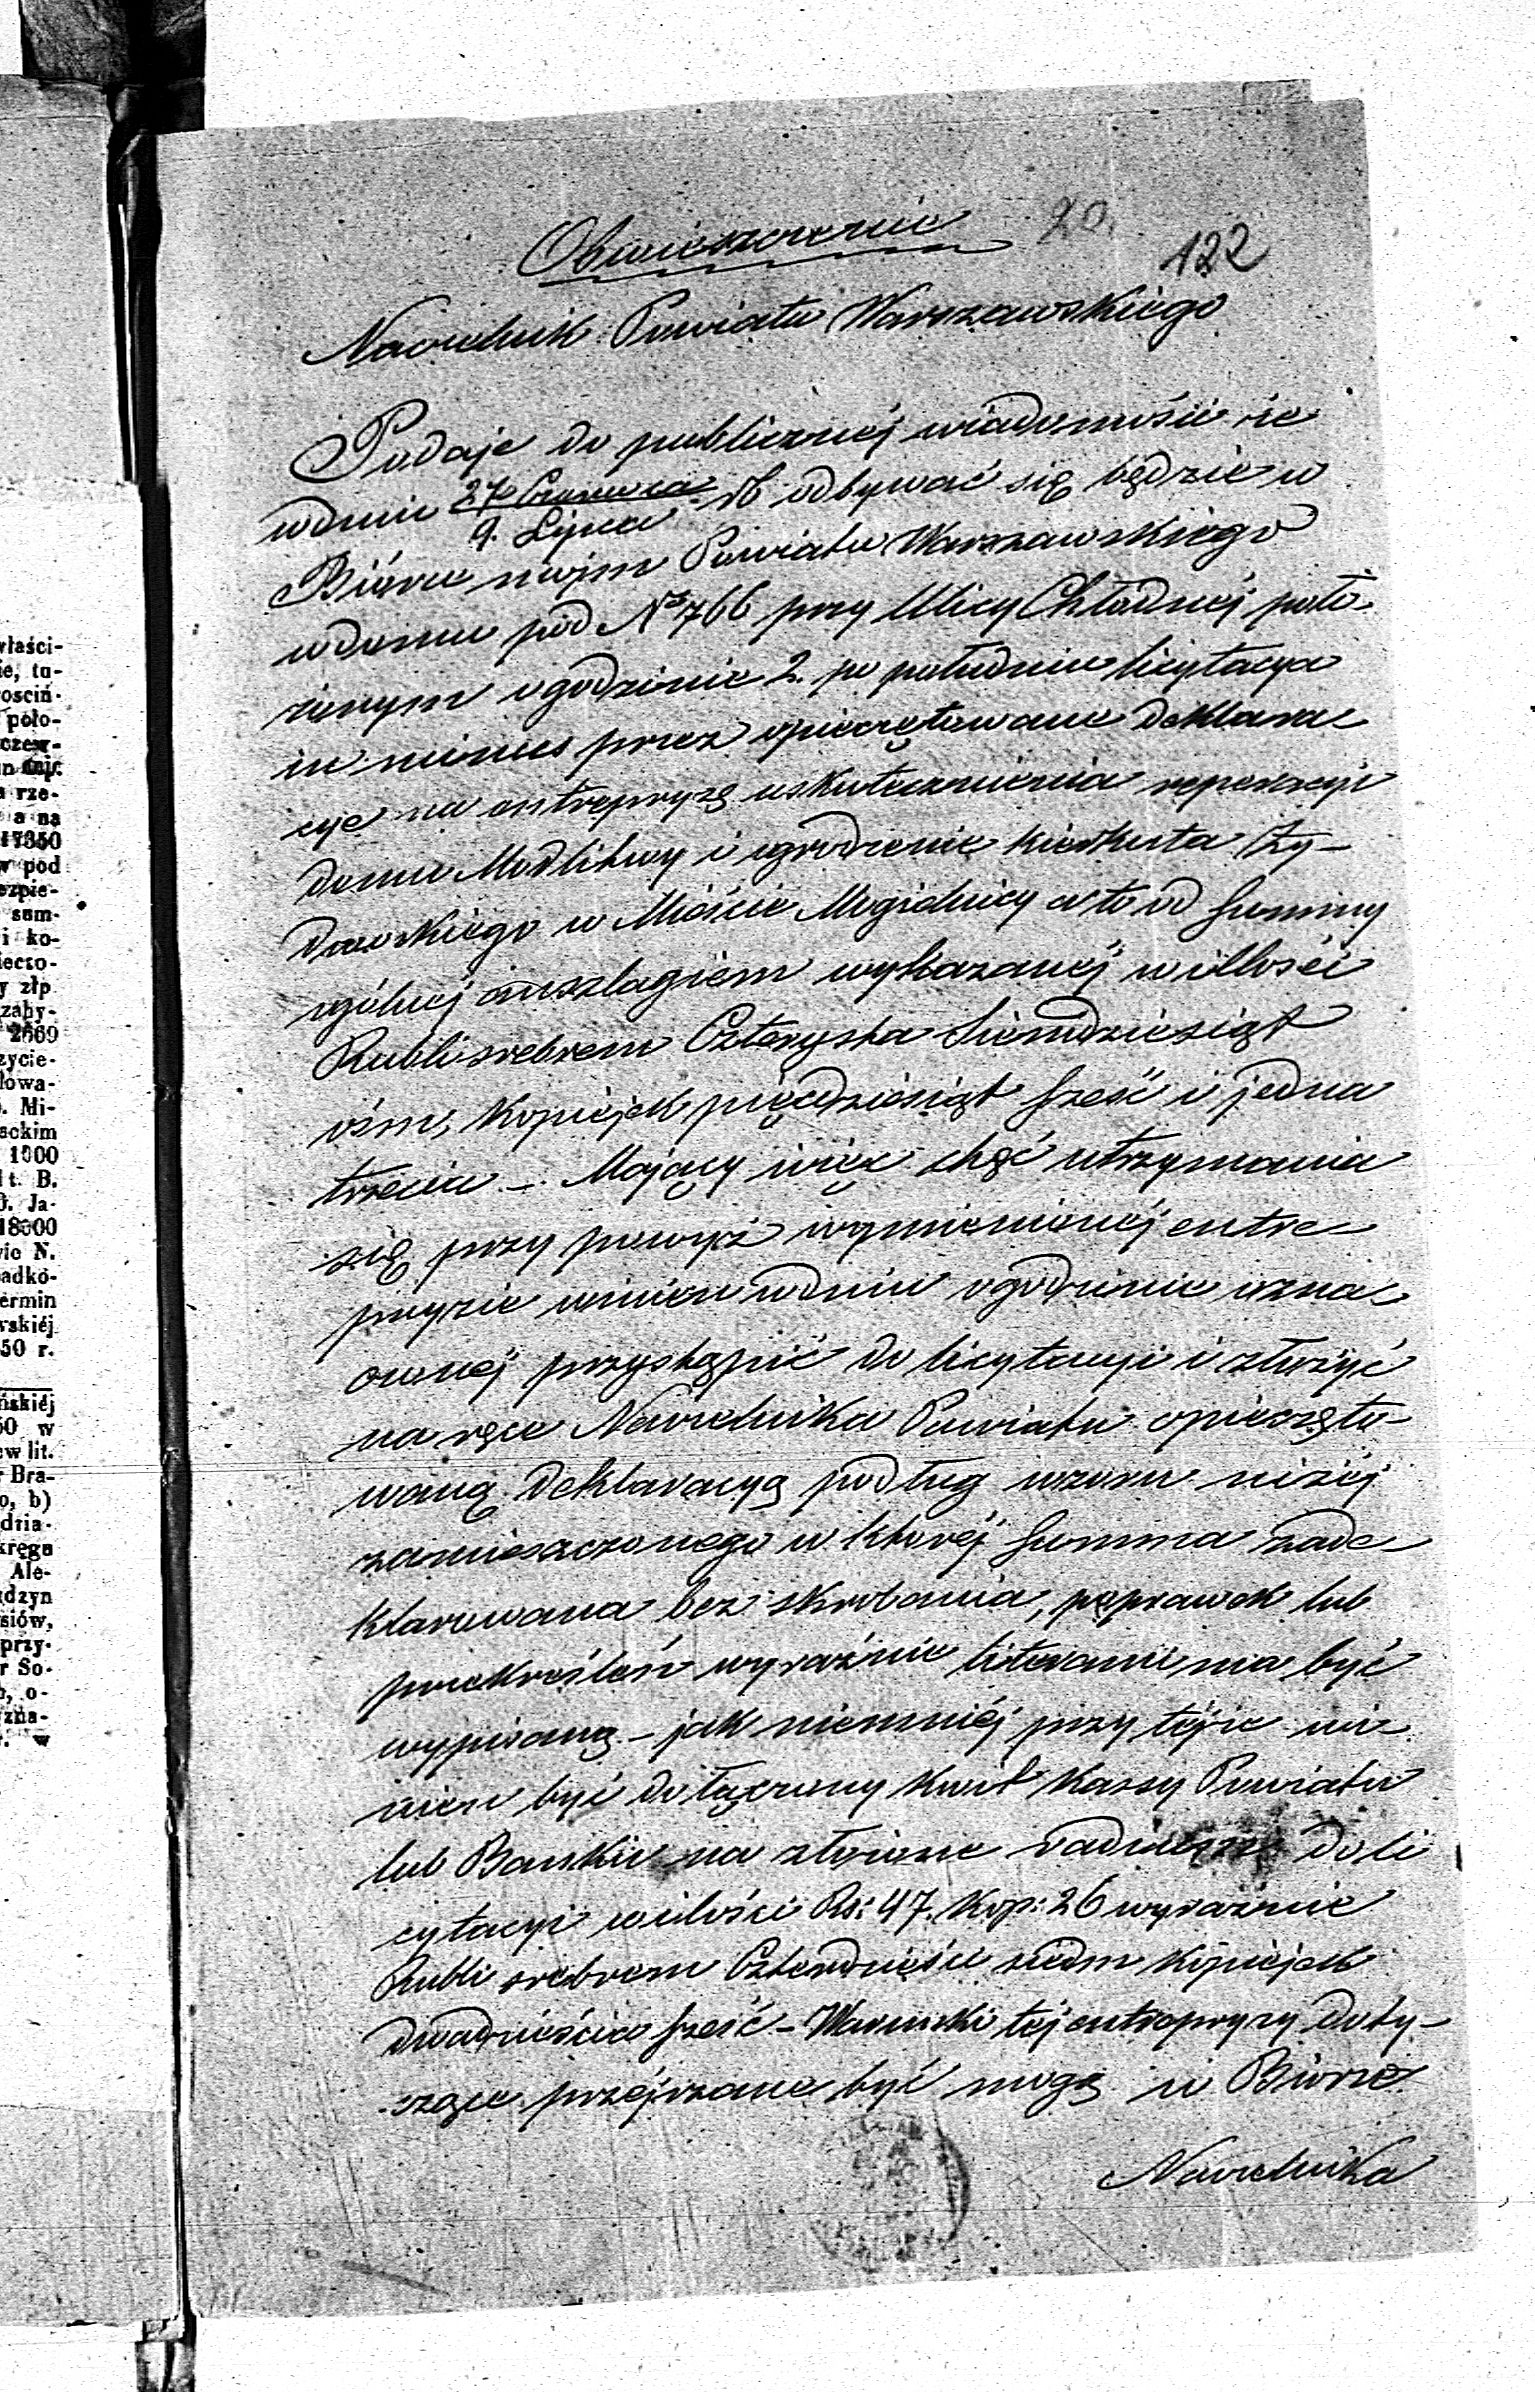 właści-
ie, tu-
rosciń-
poło-
czer-
n dnie
a rze-
a na
17350
w pod
ezpie-
sum-
i ko-
iecto-
y złp
zahy-
2669
życie-
łowa-
. Mi-
ackim
1000
lt. B.
. Ja-
18000
wie N.
adko-
ermin
wskiéj
50 r.
ńskiéj
50 w
w lit.
r Bra-
o, b)
dzia-
kręgu
Ale-
dzyn
siów,
przy-
r So-
o, o-
zna-
w
20.
122
Obwieszczenie
Naczelnik Powiatu Warszawskiego
Podaje do publicznéj wiadomości że
w dniu 27 Czerwca / 9. Lipca rb odbywać się będzie w
Biórze mojem Powiatu Warszawskiego
w domu pod No 766 przy Ulicy Chłodnéj poło-
żonym o godzinie 2. po południu licytacya
in minus przez opieczętowane Deklara-
cye na entrepryzę uskutecznienia reperacyi
domu Modlitwy i ogrodzenie kierkuta Ży-
dowskiego w Mieście Mogielnicy a to od Summy
ogólnéj anszlagiem wykazanéj w illości
Rubli srebrem Czterysta Siedmdziesiąt
óśm, Kopiejek pięćdziesiąt sześć i jedna
trzecia. – Mający więc chęć utrzymania
się przy powyż wymienionéj entre-
pryzie winien w dniu i godzinie ozna-
czonéj przystąpić do licytacyi i złożyć
na ręce Naczelnika Powiatu opieczęto-
waną Deklaracyą podług wzoru niżéj
zamieszczonego w któréj Summa zade-
klarowana bez skrobania, poprawek lub
przekreśleń wyraźnie literami ma być
wypisaną – jak niemniéj przy téjże wi-
nien być dołączony Kwit Kassy Powiatu
lub Banku na złożone vadium do li
cytacyi w ilości Rs: 47. Kop: 26 wyraźnie
Rubli srebrem Czterdzieści siedm Kopiejek
dwadzieścia sześć – Warunki téj entrepryzy doty-
czące przéjrzane być mogą w Biórze
Naczelnika